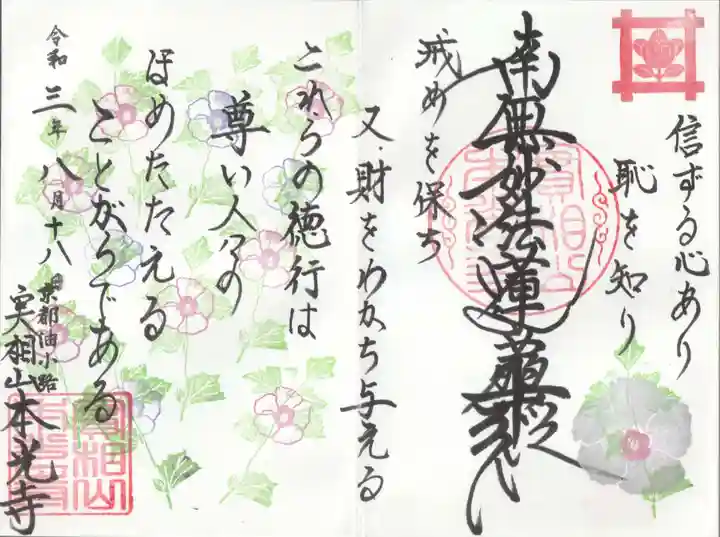 信ずる心あり
恥を知り
南無妙法蓮華経
戒めを保ち
又、財をわかち与える
これらの徳行は
尊い人々の
ほめたたえる
ことがらである
令和三年八月十八日
京都油小路
実相山本光寺